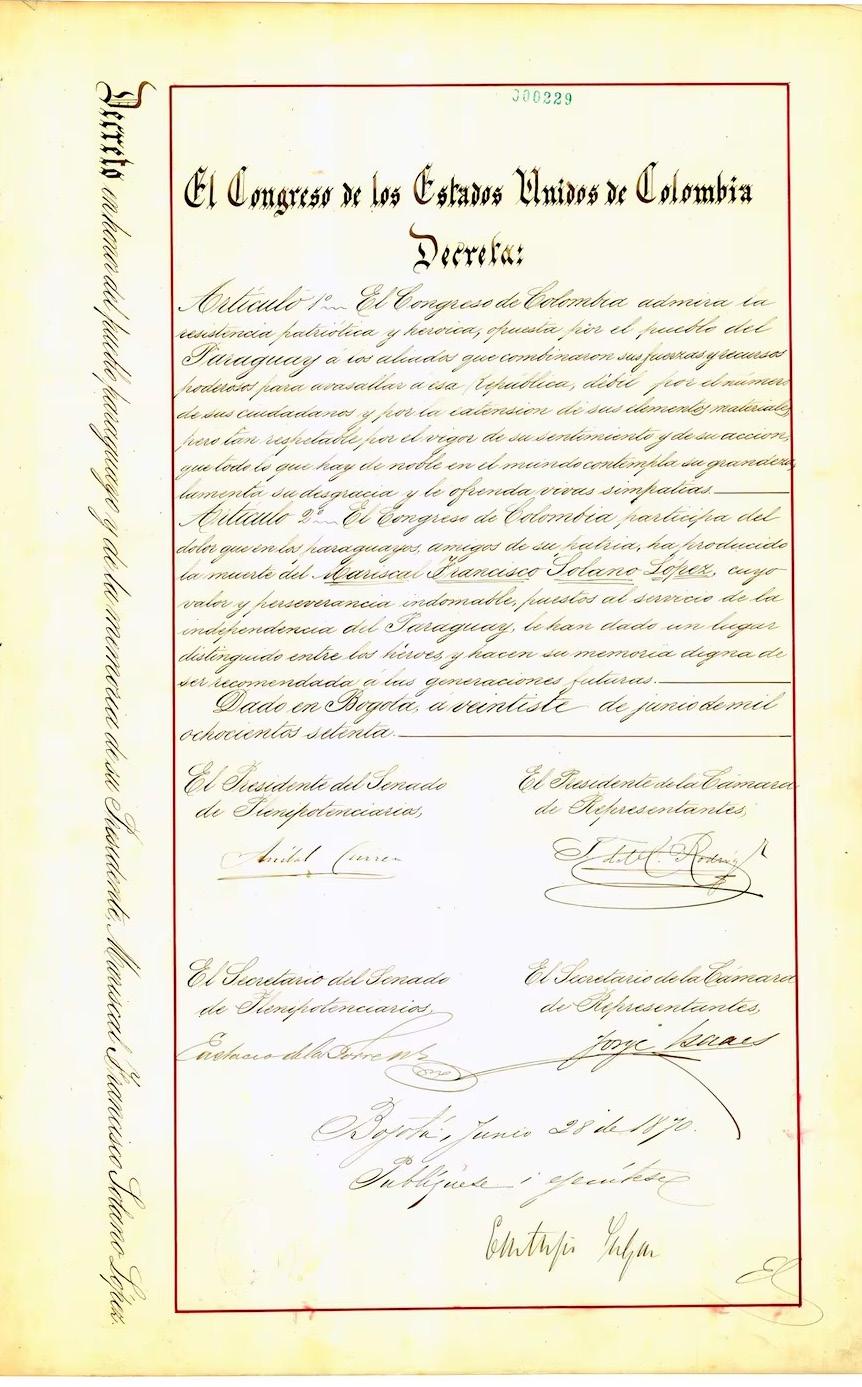 000229
Decreto en honor del pueblo paraguayo y de la memoria de su Presidente, Mariscal Francisco Solano López.
El Congreso de los Estados Unidos de Colombia
Decreta:
Artículo 1º El Congreso de Colombia admira la
resistencia patriótica y heroica, opuesta por el pueblo del
Paraguay á los aliados que combinaron sus fuerzas y recursos
poderosos para avasallar a esa República, débil por el número
de sus ciudadanos y por la extension de sus elementos materiales,
pero tan respetable por el vigor de su sentimiento y de su accion,
que todo lo que hay de noble en el mundo contempla su grandeza,
lamenta su desgracia y le ofrenda vivas simpatías.
Artículo 2º El Congreso de Colombia participa del
dolor que en los paraguayos, amigos de su patria, ha producido
la muerte del Mariscal Francisco Solano López, cuyo
valor y perseverancia indomable, puestos al servicio de la
independencia del Paraguay, le han dado un lugar
distinguido entre los héroes, y hacen su memoria digna de
ser recomendada á las generaciones futuras.
Dado en Bogotá, a veintisiete de junio de mil
ochocientos setenta.
El Presidente del Senado
de Plenipotenciarios,
El Presidente de la Cámara
de Representantes,
Aníbal
El Secretario del Senado
de Plenipotenciarios,
El Secretario de la Cámara
de Representantes,
Eustacio de la Torre N.
Jorge Isaacs
Bogotá, Junio 28 de 1870.
Publíquese i ejecútese
Eustorjio Salgar
ES